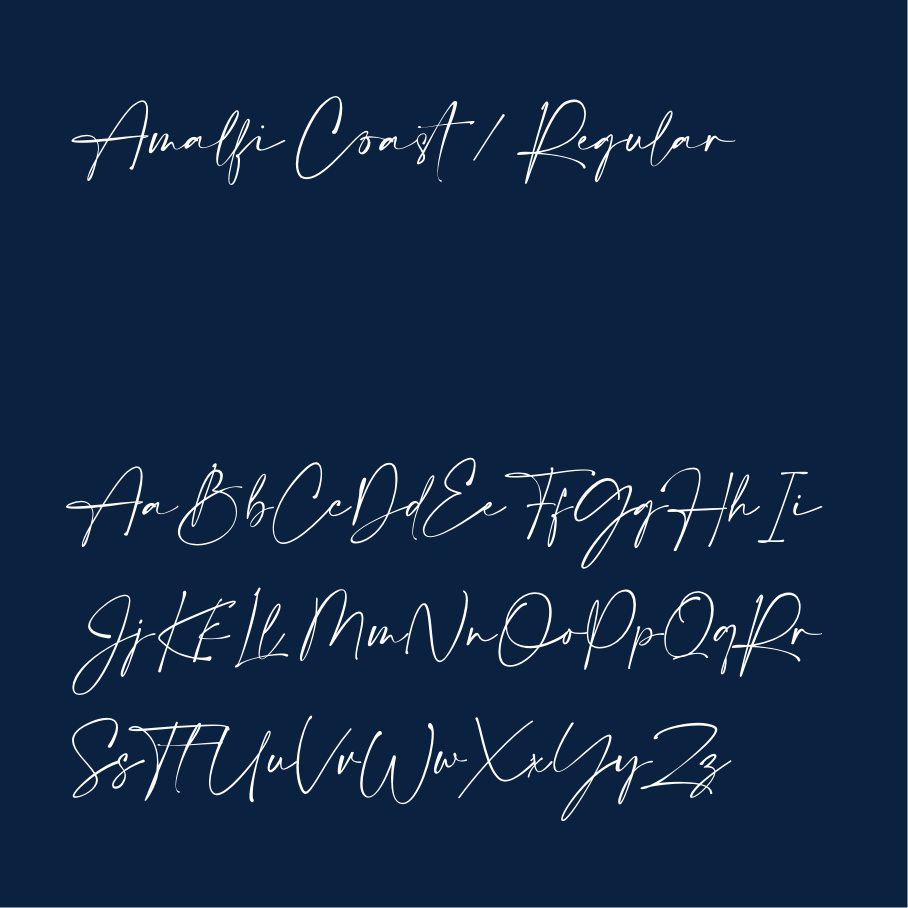 Amalfi Coast / Regular
AaBbCcDdEeFfGgHhIi
JjKkLlMmNnOoPpQqRr
SsTtUuVvWwXxYyZz